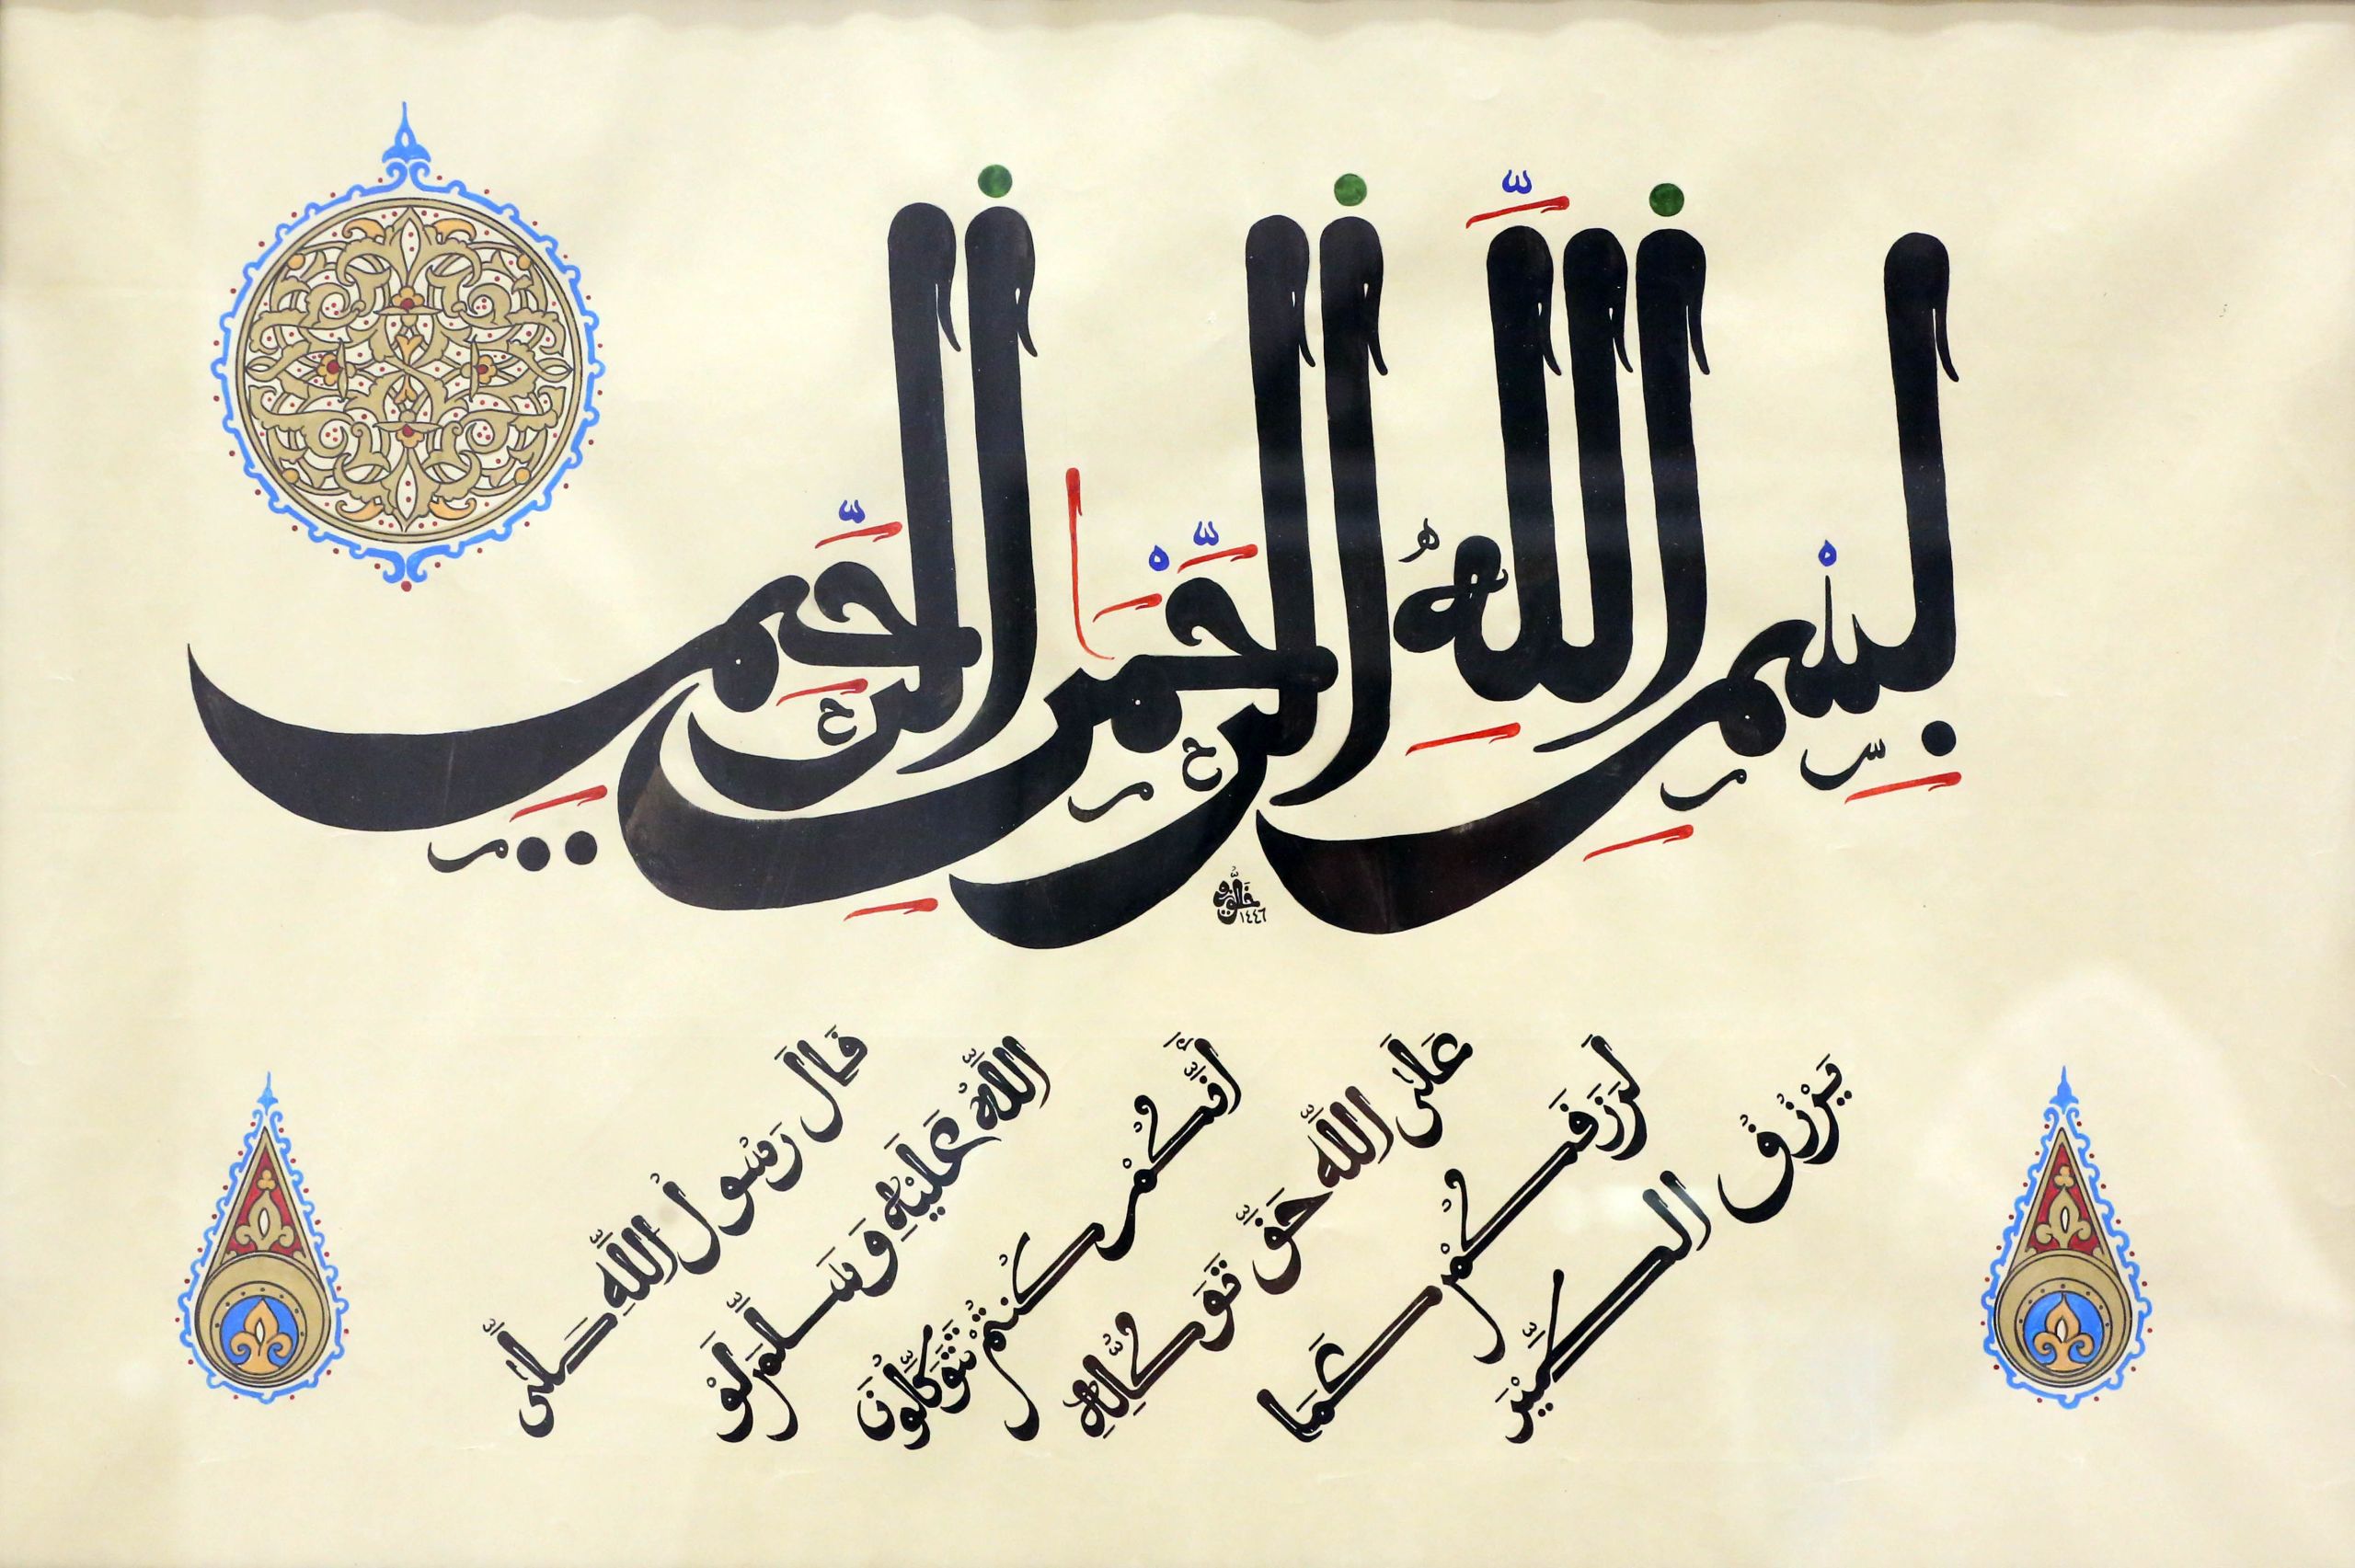 بِسْمِ اللَّهِ الرَّحْمَٰنِ الرَّحِيمِ
١٤٤٦
قَالَ رَسُولُ اللَّهِ صَلَّى
اللَّهُ عَلَيْهِ وَسَلَّمَ لَوْ
أَنَّكُمْ كُنْتُمْ تَتَوَكَّلُونَ
عَلَى اللَّهِ حَقَّ تَوَكُّلِهِ
لَرَزَقَكُمْ كَمَا
يَرْزُقُ الطَّيْرَ